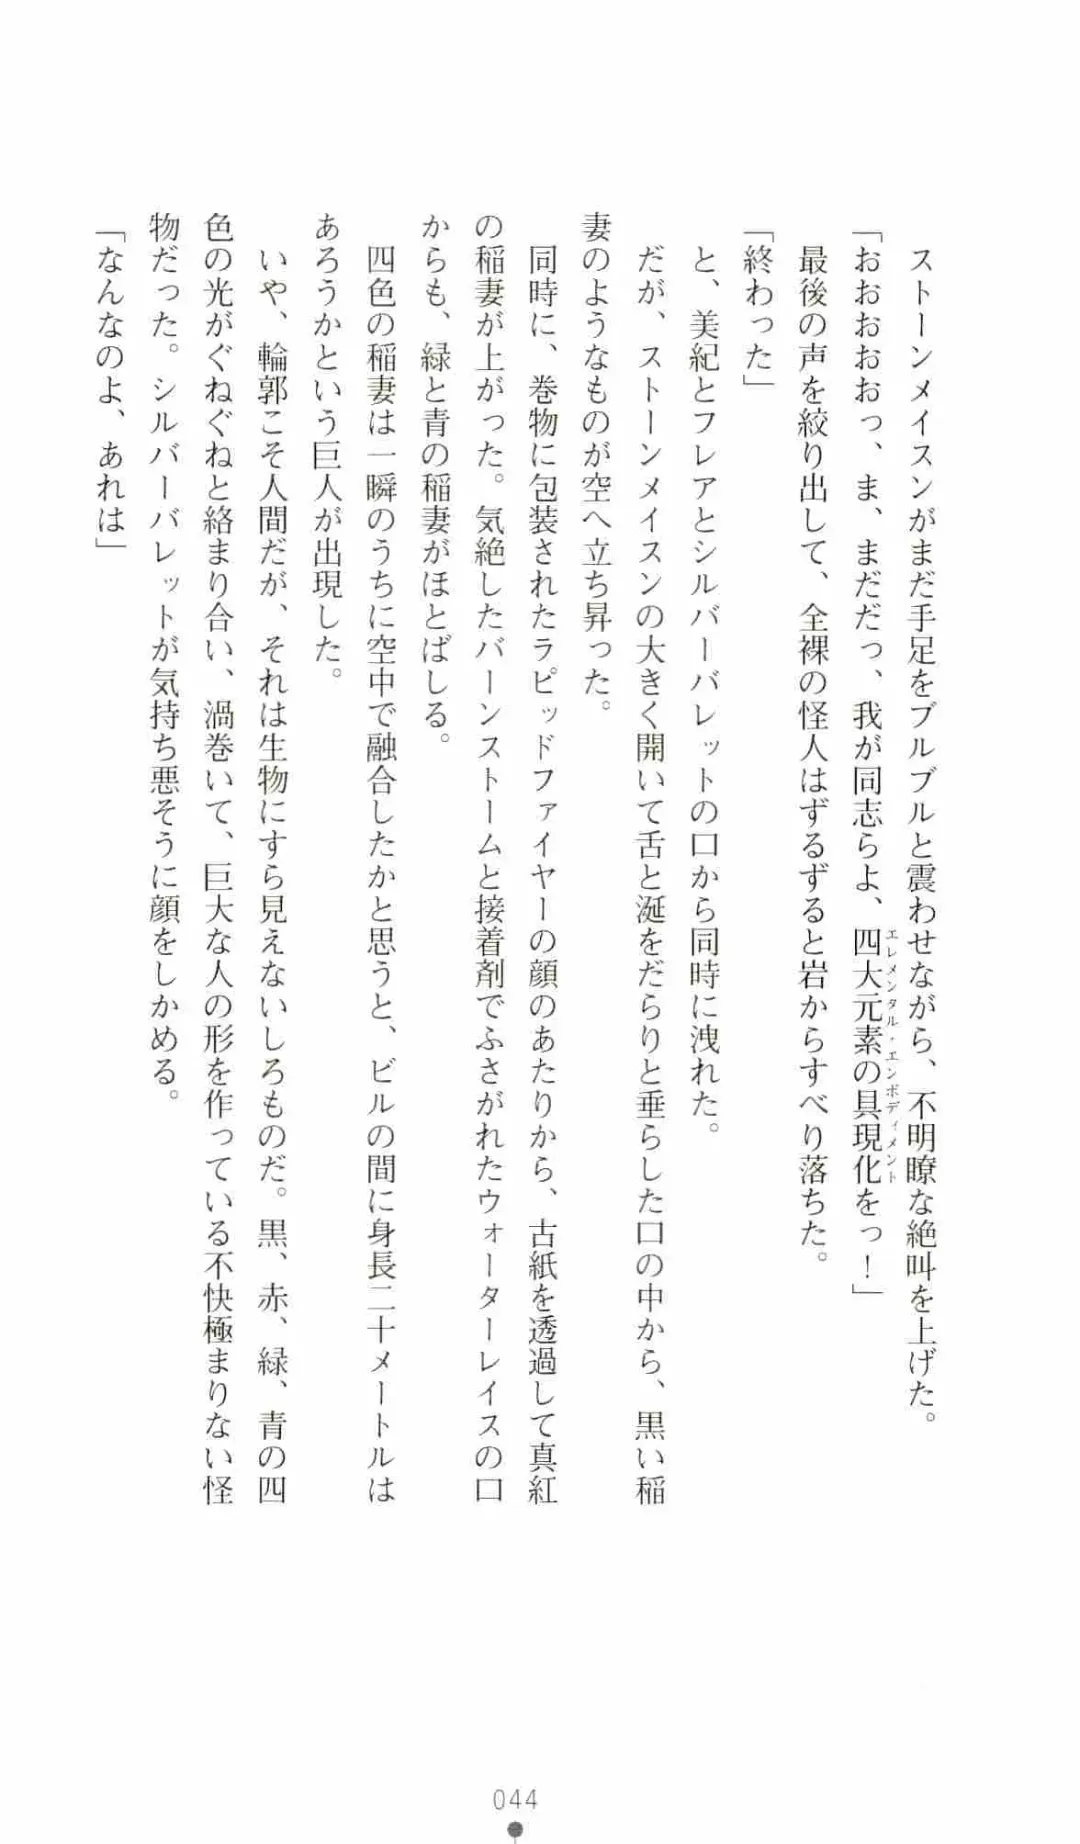 ストーンメイスンがまだ手足をブルブルと震わせながら、不明瞭な絶叫を上げた。
「おおおおおっ、ま、まだだっ、我が同志らよ、四大元素の具現化をっ！」
エレメンタル・エンボディメント
最後の声を絞り出して、全裸の怪人はずるずると岩からすべり落ちた。
「終わった」
と、美紀とフレアとシルバーバレットの口から同時に洩れた。
だが、ストーンメイスンの大きく開いて舌と涎をだらりと垂らした口の中から、黒い稲
妻のようなものが空へ立ち昇った。
同時に、巻物に包装されたラピッドファイヤーの顔のあたりから、古紙を透過して真紅
の稲妻が上がった。気絶したバーンストームと接着剤でふさがれたウォーターレイスの口
からも、緑と青の稲妻がほとばしる。
四色の稲妻は一瞬のうちに空中で融合したかと思うと、ビルの間に身長二十メートルは
あろうかという巨人が出現した。
いや、輪郭こそ人間だが、それは生物にすら見えないしろものだ。黒、赤、緑、青の四
色の光がぐねぐねと絡まり合い、渦巻いて、巨大な人の形を作っている不快極まりない怪
物だった。シルバーバレットが気持ち悪そうに顔をしかめる。
「なんなのよ、あれは」
044